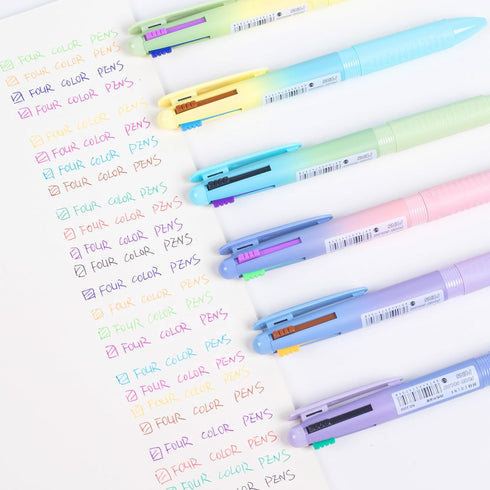 FOUR COLOR PENS
FOUR COLOR PENS
FOUR COLOR PENS
FOUR COLOR PENS
FOUR COLOR PENS
FOUR COLOR PENS
FOUR COLOR PENS
FOUR COLOR PENS
FOUR COLOR PENS
FOUR COLOR PENS
FOUR COLOR PENS
FOUR COLOR PENS
FOUR COLOR PENS
FOUR COLOR PENS
FOUR COLOR PENS
FOUR COLOR PENS
FOUR COLOR PENS
FOUR COLOR PENS
FOUR COLOR PENS
FOUR COLOR PENS
FOUR COLOR PENS
FOUR COLOR PENS
FOUR COLOR PENS
COLOR PENS